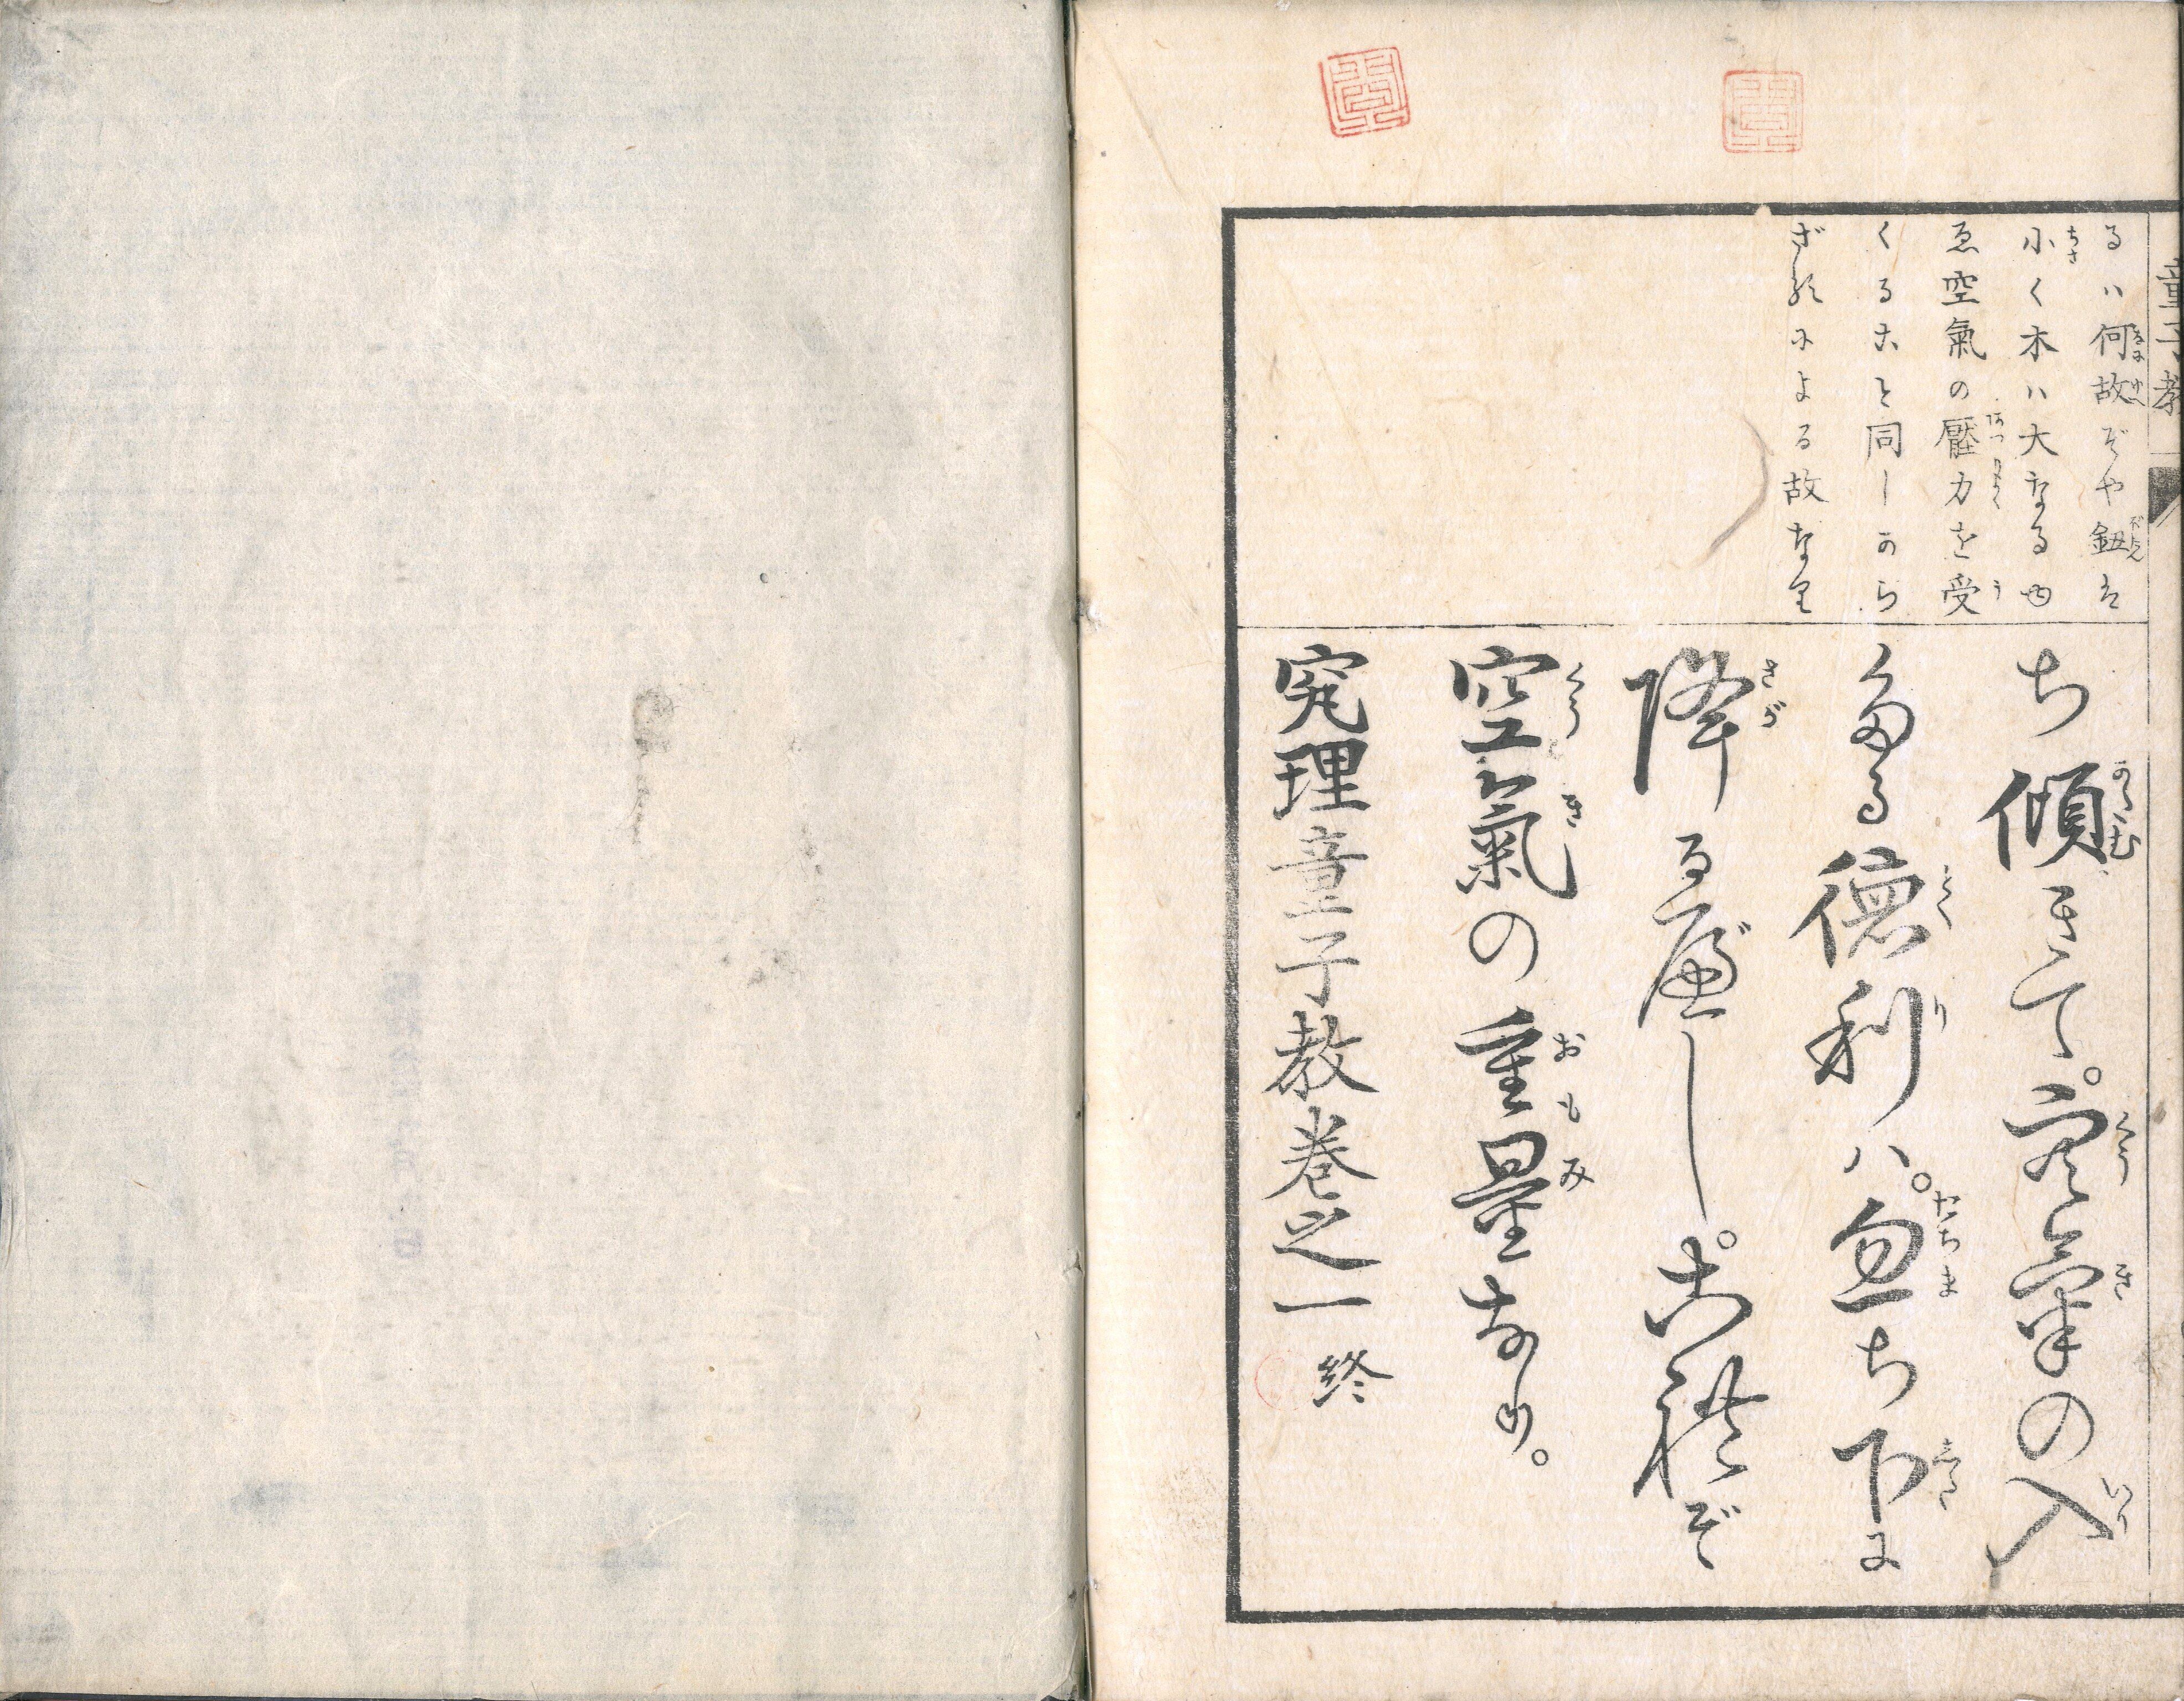 童子教
るハ何故ぞや鈕は
小く木ハ大なるゆ
ゑ空氣の壓力を受
くること同しから
ざるによる故なり
ち傾きて。空氣の入
たる德利ハ。忽ち下に
降るべし。これぞ
空氣の重量なり。
窮理童子教卷之一終